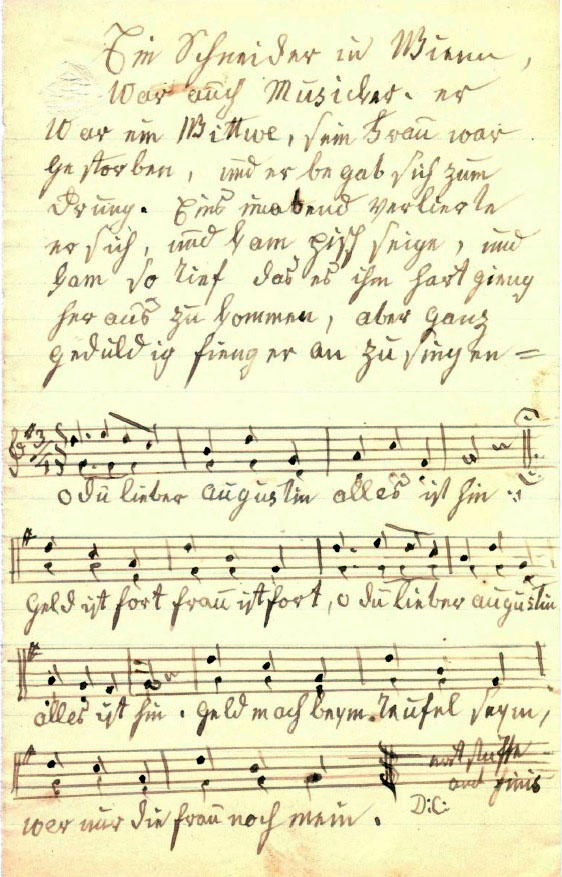 Ein Schneider in Wienn,
War auch Musicker. er
War ein Wittwe, sein Frau war
gestorben, und er begab sich zum
Drung. Eins inabend verlierte
er sich, und kam seige, und
kam so Tief das es ihm hart gieng
her aus zu kommen, aber ganz
geduldig fieng er an zu singen =
3/4
o du lieber augustin alles ist hin :
Geld ist fort frau ist fort, o du lieber augustin
alles ist hin . Geld mach beym Teufel seyn,
and finis
wer nur die frau noch mein .
D:C: